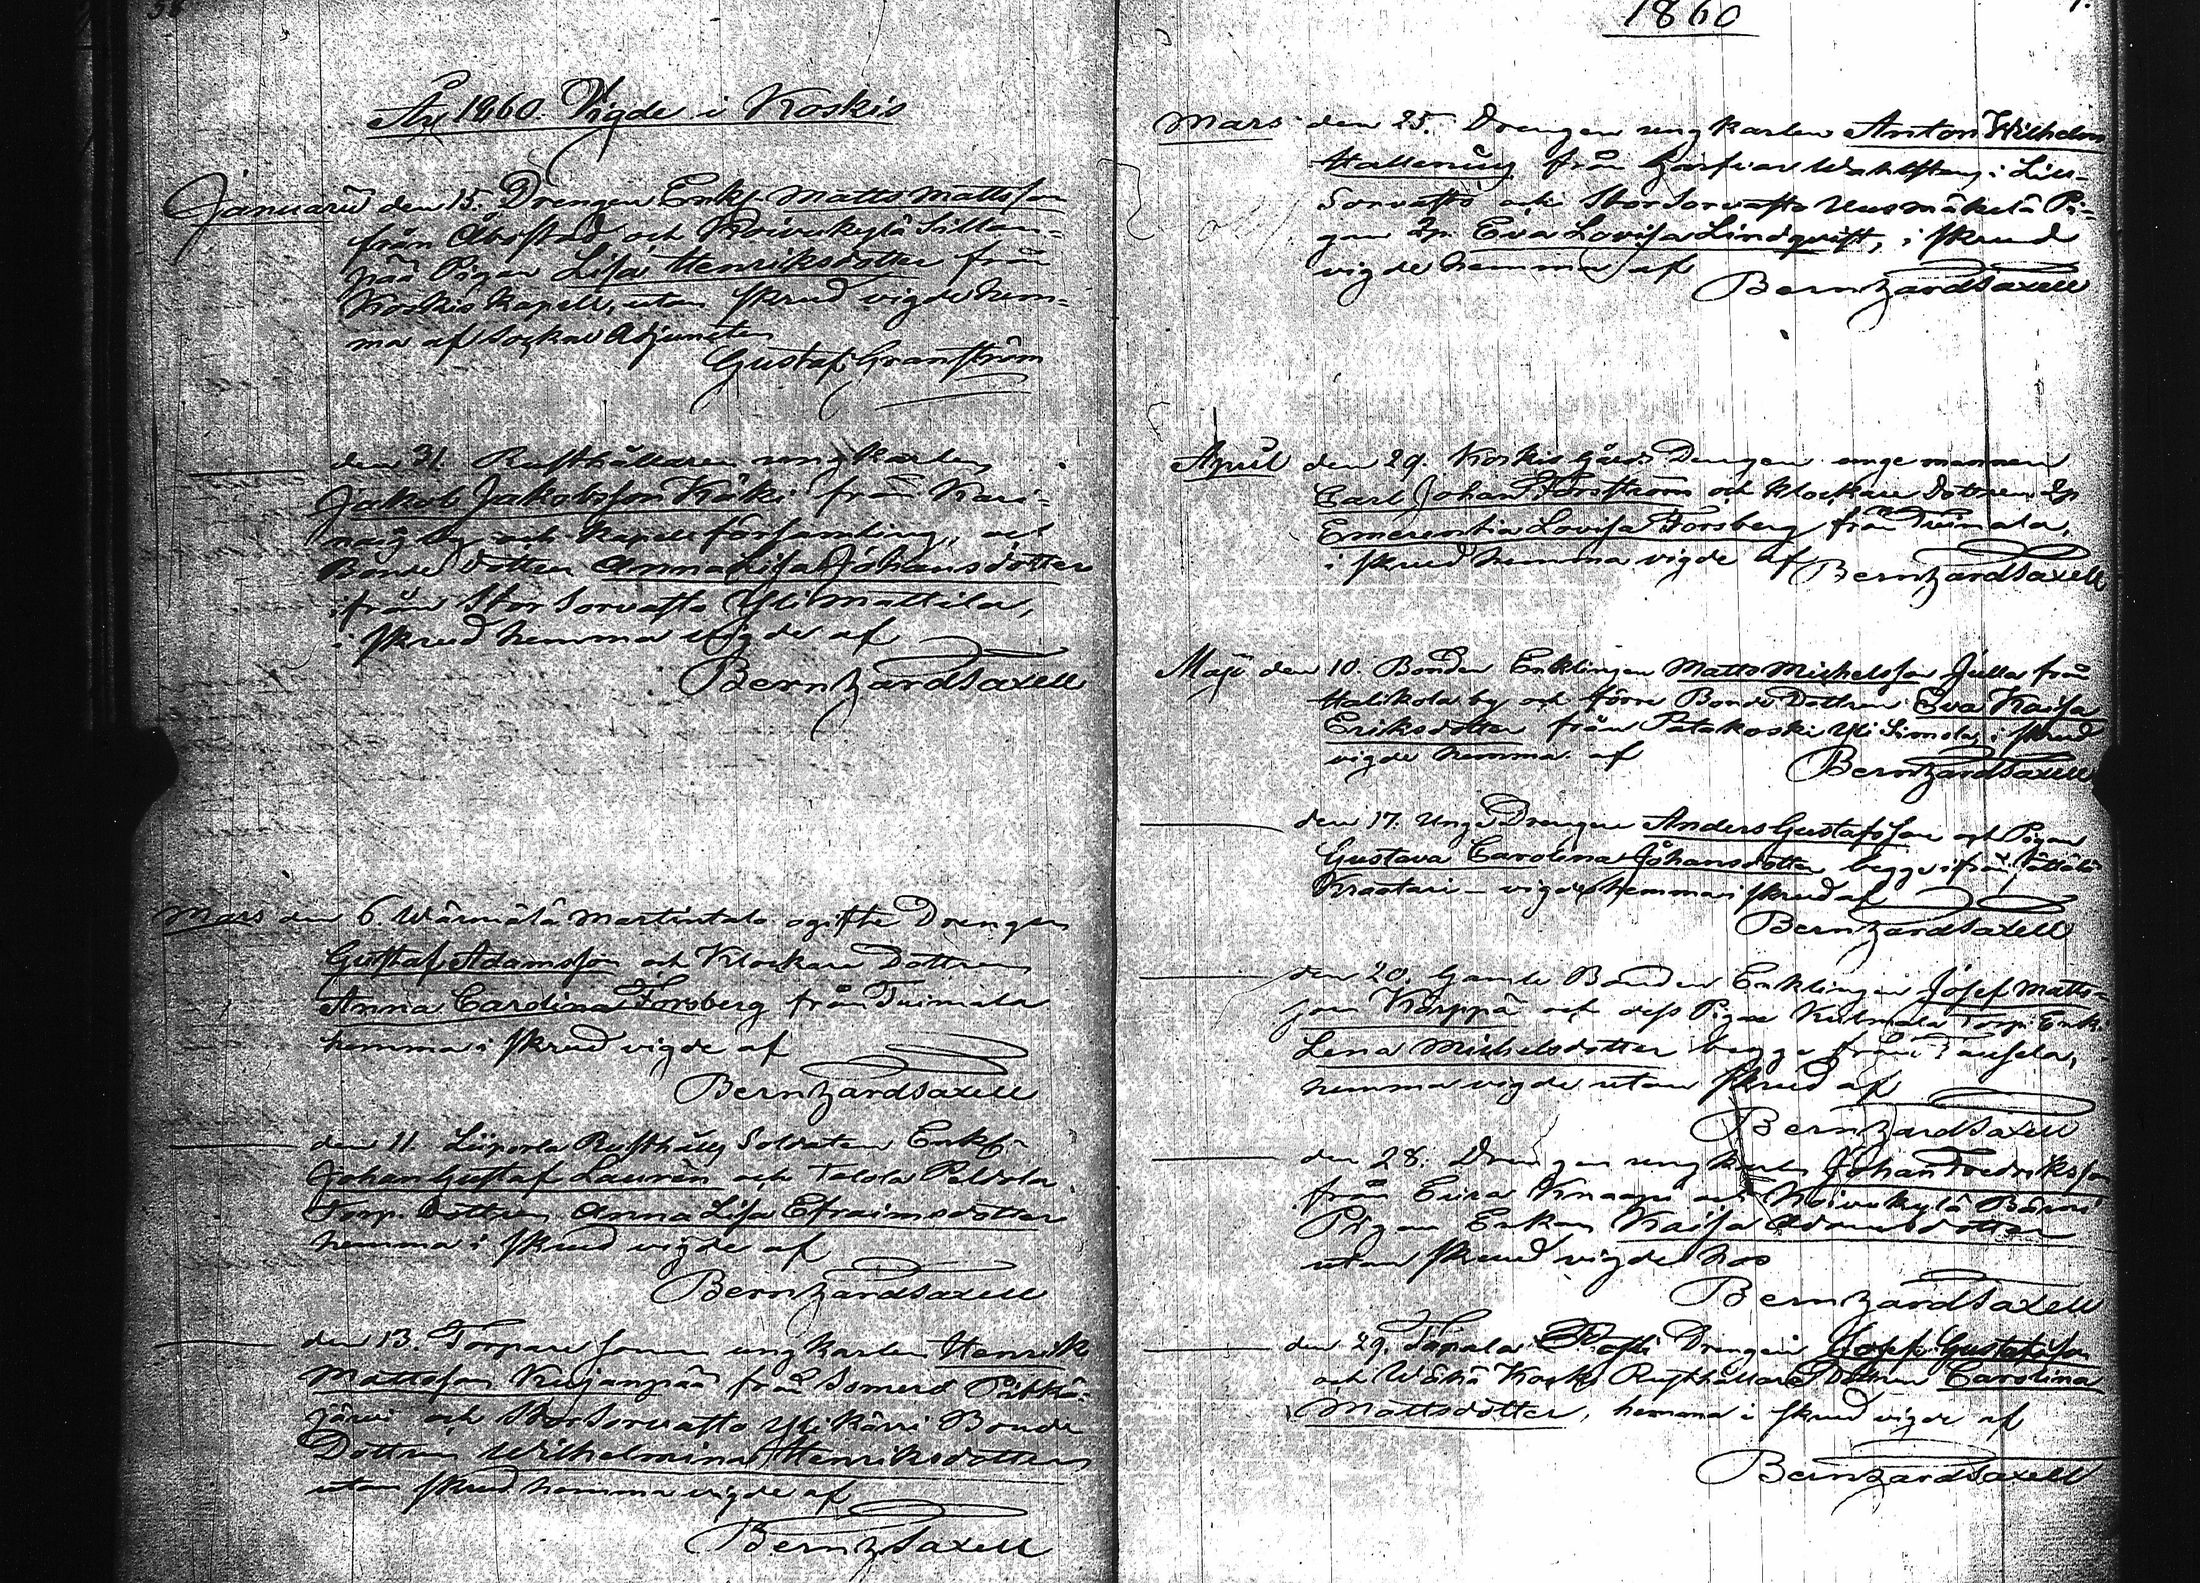 År 1860. Vigde i Koskis
Januarii den 15. Drengen Enkl. Matts Mattsson
från Åbo stad och Koivukylä Sillan=
pää Pigan Lisa Henriksdotter från
Koskis Kapell, utan skrud vigde hem=
ma af Sockne Adjuncten
Gustaf Granström
den 31. Rusthållaren ungkarlen
Jakob Jakobsson Käki från Kari=
nais by och Kapellförsamling, och
Bonde dottren Anna Lisa Johansdotter
ifrån Stor Sorvasto Yli Mattila,
i skrud hemma vigde af
Bernhard Saxell
Mars den 6. Wärmälä Martintalo ogifte Drengen
Gustaf Adamsson och Klockare Dottren
Anna Carolina Forsberg från Tuimala
hemma i skrud vigde af
Bernhard Saxell
den 11. Liiporla Rusthålls Soldaten Enkl.
Johan Gustaf Laurén och Talola Peldola
Torp. dottren Anna Lisa Efraimsdotter
hemma i skrud vigde af
Bernhard Saxell
den 13. Torpare sonen ungkarlen Henrik
Mattsson Kujanpää från Somero Pitkä=
järvi och Stor Sorvasto Yli Kärri Bonde
Dottren Wilhelmina Henriksdotter
utan skrud hemma vigde af
Bernh. Saxell
1860
Mars den 25. Drengen ungkarlen Anton Wilhelm
från Wahlsten i Lill=
Sorvasto och Stor Sorvasto Uusmäkelä Pi=
gan Jp. Eva Lovisa Lindqvist, i skrud
vigde hemma af
Bernhard Saxell
April den 29. Koskis gårds Drengen unge mannen
Carl Johan Forsström och Klockare dottren Jp.
Emerentia Lovisa Forsberg från Tuimala,
i skrud hemma vigde af Bernhard Saxell
Maji den 10. Bonden Enklingen Matts Michelsson Julla från
Halikola by och förre Bonde Dottren Eva Kaisa
Eriksdotter från Patakoski Yli Simola, i skrud
vigde hemma af
Bernhard Saxell
den 17. Unge Drengen Anders Gustafsson och Pigan
Gustava Carolina Johansdotter begge ifrån
Kraatari – vigde hemma i skrud af
Bernhard Saxell
den 20. Gamle Bonden Enklingen Josef Matts=
son Korppå och dess Pigan Kulmala Torp. Enk.
Lena Michelsdotter begge från Tausela,
hemma vigde utan skrud af
Bernhard Saxell
den 28. Drengen ungkarlen Johan Fredriksson
från Eura Knaapi och Koivukylä
Pigan Enkan Kaisa Adamsdotter
utan skrud vigde hos
Bernhard Saxell
den 29. Tapala Drengen Josef Gustafsson
och Wähä Koski Rusthållare Dottren Carolina
Mattsdotter, hemma i skrud vigde af
Bernhard Saxell